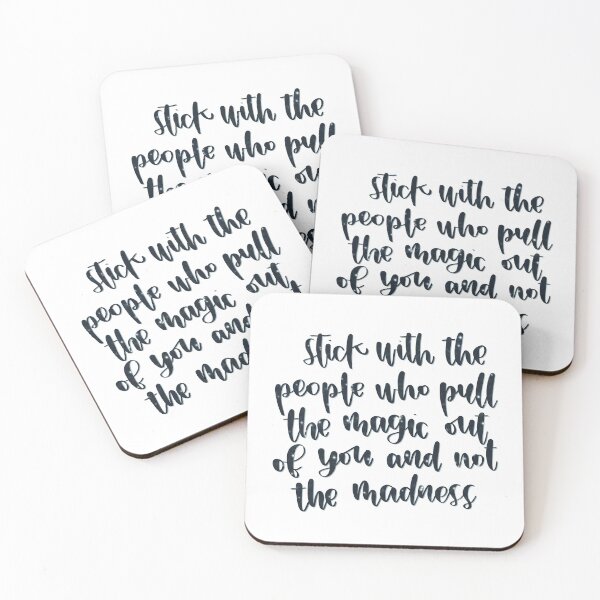 stick with the
people who pull
the magic
stick with the
people who pull
the magic out
of you and not
stick with the
people who pull
the magic out
of you and
the mad
stick with the
people who pull
the magic out
of you and not
the madness